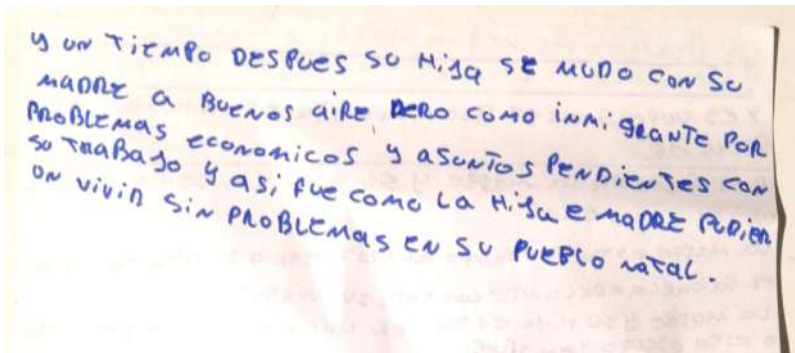 y un Tiempo DESPUES SU HiJa SE MUDO CON SU
MADRE a BUENOS aiRE, PERO COMO inmigRanTE POR
PROBLEMAS economicos y asunTos PENDienTES CON
SU TRABAJO y asi FUE COMO La HiJa E MADRE PUDIER
ON viviR Sin PROBLEMAS EN SU PUEBLO naTal.